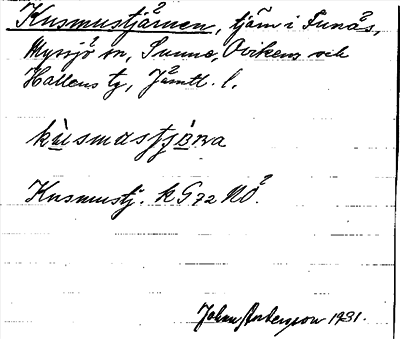 Kusmustjärnen, tjärn i Funäs,
Myssjö sn, Sunne, Oviken och
Hallens tg, Jämtl. l.
kùsmastjä̀rna
Kusmustj. k G 72 NÖ.
Johan Anderson 1931.